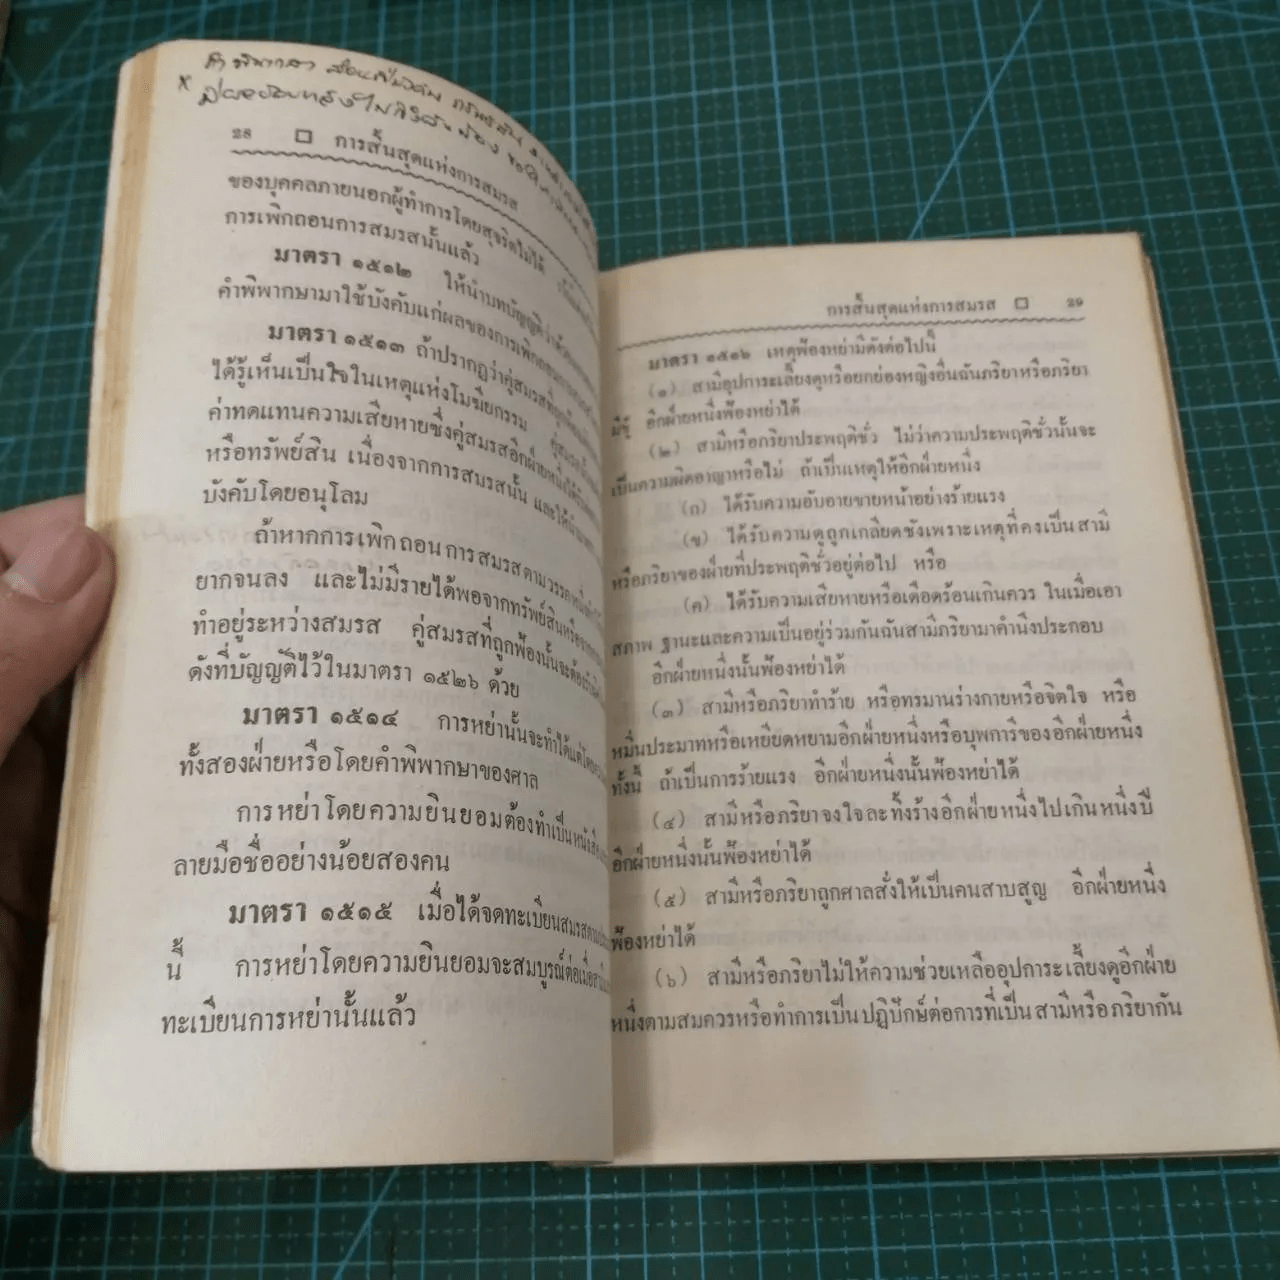 28 □ การสิ้นสุดแห่งการสมรส
ของบุคคลภายนอกผู้ทำการโดยสุจริตไม่ได้
การเพิกถอนการสมรสนั้นแล้ว
มาตรา ๑๕๑๒ ให้นำบทบัญญัติว่าด้วย
คำพิพากษามาใช้บังคับแก่ผลของการเพิกถอน
มาตรา ๑๕๑๓ ถ้าปรากฏว่าคู่สมรสที่ถูกฟ้อง
ได้รู้เห็นเป็นใจในเหตุแห่งโมฆียกรรม คู่สมรสนั้น
ค่าทดแทนความเสียหายซึ่งคู่สมรสอีกฝ่ายหนึ่งได้รับ
หรือทรัพย์สิน เนื่องจากการสมรสนั้น และให้นำ
บังคับโดยอนุโลม
ถ้าหากการเพิกถอนการสมรสตามวรรคหนึ่งทำให้
ยากจนลง และไม่มีรายได้พอจากทรัพย์สินหรือจาก
ทำอยู่ระหว่างสมรส คู่สมรสที่ถูกฟ้องนั้นจะต้อง
ดังที่บัญญัติไว้ในมาตรา ๑๕๒๖ ด้วย
มาตรา ๑๕๑๔ การหย่านั้นจะทำได้แต่โดยความ
ทั้งสองฝ่ายหรือโดยคำพิพากษาของศาล
การหย่าโดยความยินยอมต้องทำเป็นหนังสือ
ลายมือชื่ออย่างน้อยสองคน
มาตรา ๑๕๑๕ เมื่อได้จดทะเบียนสมรสตาม
นี้ การหย่าโดยความยินยอมจะสมบูรณ์ต่อเมื่อสามี
ทะเบียนการหย่านั้นแล้ว
การสิ้นสุดแห่งการสมรส □ 29
มาตรา ๑๕๑๖ เหตุฟ้องหย่ามีดังต่อไปนี้
(๑) สามีอุปการะเลี้ยงดูหรือยกย่องหญิงอื่นฉันภริยาหรือภริยา
มีชู้ อีกฝ่ายหนึ่งฟ้องหย่าได้
(๒) สามีหรือภริยาประพฤติชั่ว ไม่ว่าความประพฤติชั่วนั้นจะ
เป็นความผิดอาญาหรือไม่ ถ้าเป็นเหตุให้อีกฝ่ายหนึ่ง
(ก) ได้รับความอับอายขายหน้าอย่างร้ายแรง
(ข) ได้รับความดูถูกเกลียดชังเพราะเหตุที่คงเป็นสามี
หรือภริยาของฝ่ายที่ประพฤติชั่วอยู่ต่อไป หรือ
(ค) ได้รับความเสียหายหรือเดือดร้อนเกินควร ในเมื่อเอา
สภาพ ฐานะและความเป็นอยู่ร่วมกันฉันสามีภริยามาคำนึงประกอบ
อีกฝ่ายหนึ่งนั้นฟ้องหย่าได้
(๓) สามีหรือภริยาทำร้าย หรือทรมานร่างกายหรือจิตใจ หรือ
หมิ่นประมาทหรือเหยียดหยามอีกฝ่ายหนึ่งหรือบุพการีของอีกฝ่ายหนึ่ง
ทั้งนี้ ถ้าเป็นการร้ายแรง อีกฝ่ายหนึ่งนั้นฟ้องหย่าได้
(๔) สามีหรือภริยาจงใจละทิ้งร้างอีกฝ่ายหนึ่งไปเกินหนึ่งปี
อีกฝ่ายหนึ่งนั้นฟ้องหย่าได้
(๕) สามีหรือภริยาถูกศาลสั่งให้เป็นคนสาบสูญ อีกฝ่ายหนึ่ง
ฟ้องหย่าได้
(๖) สามีหรือภริยาไม่ให้ความช่วยเหลืออุปการะเลี้ยงดูอีกฝ่าย
หนึ่งตามสมควรหรือทำการเป็นปฏิปักษ์ต่อการที่เป็นสามีหรือภริยากัน